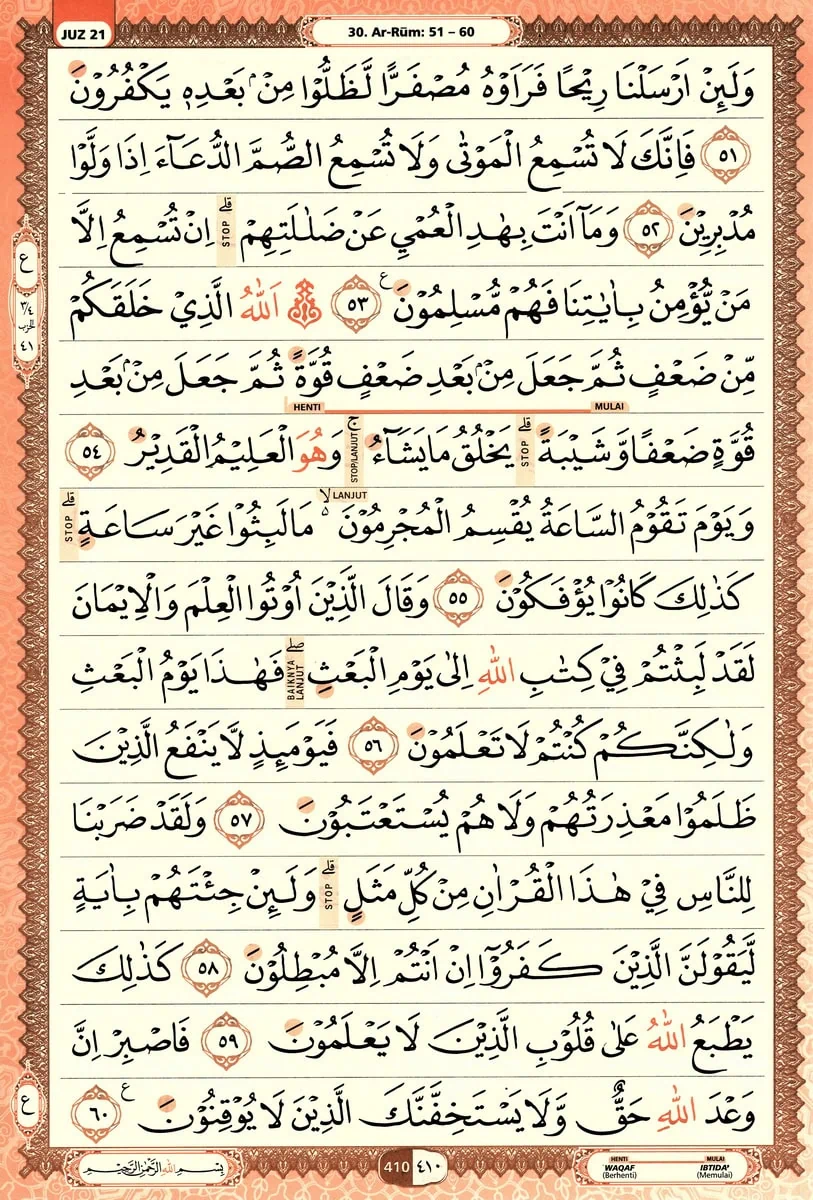 JUZ 21
30. Ar-Rūm: 51 – 60
وَلَىِٕنْ اَرْسَلْنَا رِيْحًا فَرَاَوْهُ مُصْفَرًّا لَّظَلُّوْا مِنْۢ بَعْدِهٖ يَكْفُرُوْنَ
٥١ فَاِنَّكَ لَا تُسْمِعُ الْمَوْتٰى وَلَا تُسْمِعُ الصُّمَّ الدُّعَاۤءَ اِذَا وَلَّوْا
مُدْبِرِيْنَ ٥٢ وَمَآ اَنْتَ بِهٰدِ الْعُمْيِ عَنْ ضَلٰلَتِهِمْ ۗ STOP اِنْ تُسْمِعُ اِلَّا
مَنْ يُّؤْمِنُ بِاٰيٰتِنَا فَهُمْ مُّسْلِمُوْنَ ع ٥٣ ۞ اَللّٰهُ الَّذِيْ خَلَقَكُمْ
مِّنْ ضَعْفٍ ثُمَّ جَعَلَ مِنْۢ بَعْدِ ضَعْفٍ قُوَّةً ثُمَّ جَعَلَ مِنْۢ بَعْدِ
MULAI HENTI
قُوَّةٍ ضَعْفًا وَّشَيْبَةً ۗ STOP يَخْلُقُ مَا يَشَاۤءُ ۚ STOP/LANJUT وَهُوَ الْعَلِيْمُ الْقَدِيْرُ ٥٤
وَيَوْمَ تَقُوْمُ السَّاعَةُ يُقْسِمُ الْمُجْرِمُوْنَ ەۙ LANJUT مَا لَبِثُوْا غَيْرَ سَاعَةٍ ۗ STOP
كَذٰلِكَ كَانُوْا يُؤْفَكُوْنَ ٥٥ وَقَالَ الَّذِيْنَ اُوْتُوا الْعِلْمَ وَالْاِيْمَانَ
لَقَدْ لَبِثْتُمْ فِيْ كِتٰبِ اللّٰهِ اِلٰى يَوْمِ الْبَعْثِ ۖ BAIKNYA LANJUT فَهٰذَا يَوْمُ الْبَعْثِ
وَلٰكِنَّكُمْ كُنْتُمْ لَا تَعْلَمُوْنَ ٥٦ فَيَوْمَىِٕذٍ لَّا يَنْفَعُ الَّذِيْنَ
ظَلَمُوْا مَعْذِرَتُهُمْ وَلَا هُمْ يُسْتَعْتَبُوْنَ ٥٧ وَلَقَدْ ضَرَبْنَا
لِلنَّاسِ فِيْ هٰذَا الْقُرْاٰنِ مِنْ كُلِّ مَثَلٍ ۗ STOP وَلَىِٕنْ جِئْتَهُمْ بِاٰيَةٍ
لَّيَقُوْلَنَّ الَّذِيْنَ كَفَرُوْٓا اِنْ اَنْتُمْ اِلَّا مُبْطِلُوْنَ ٥٨ كَذٰلِكَ
يَطْبَعُ اللّٰهُ عَلٰى قُلُوْبِ الَّذِيْنَ لَا يَعْلَمُوْنَ ٥٩ فَاصْبِرْ اِنَّ
وَعْدَ اللّٰهِ حَقٌّ وَّلَا يَسْتَخِفَّنَّكَ الَّذِيْنَ لَا يُوْقِنُوْنَ ع ٦٠
ع
٣/٤
الحزب
٤١
ع
بِسْمِ اللّٰهِ الرَّحْمٰنِ الرَّحِيْمِ
410 ٤١٠
HENTI MULAI
WAQAF IBTIDA'
(Berhenti) (Memulai)